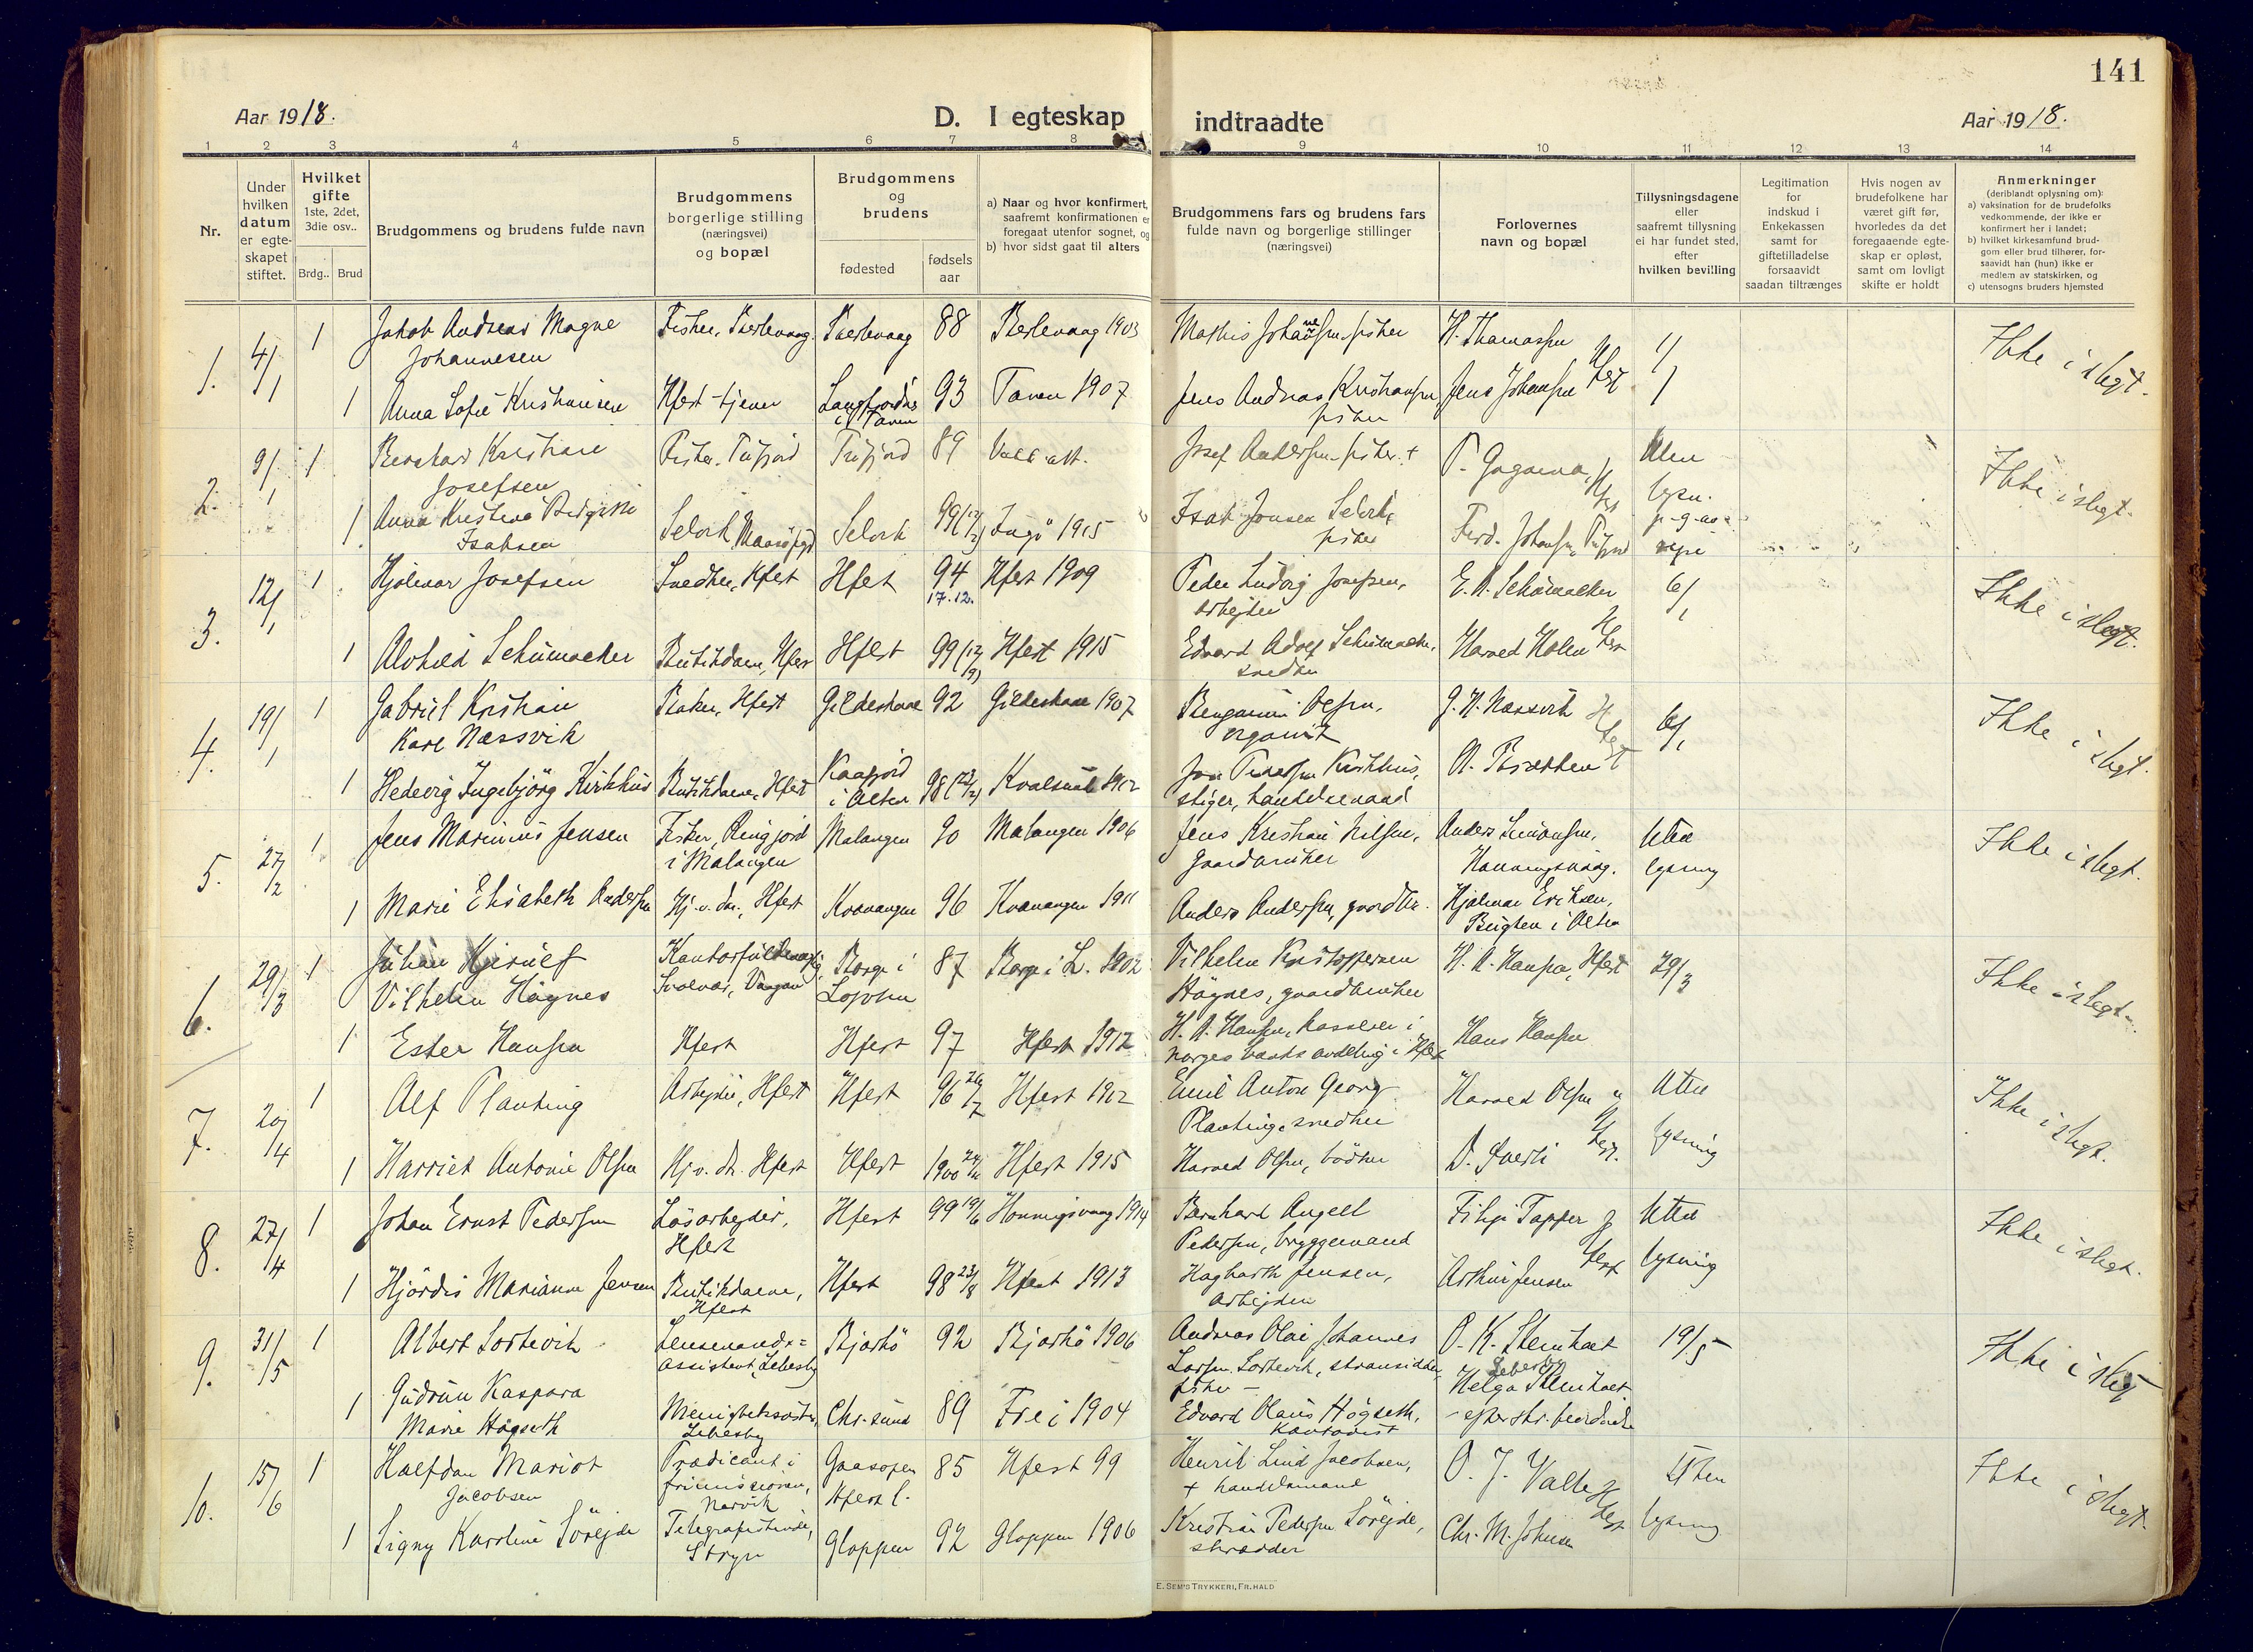 141
Aar 1918.
D. I egteskap indtraadte
Aar 1918.
1 2 3 4 5 6 7. 8 9 10 11 12 13 14
Nr.
Under hvilken datum er egteskapet stiftet.
Hvilket gifte 1ste, 2det, 3die osv..
Brdg.. Brud
Brudgommens og brudens fulde navn
Brudgommens borgerlige stilling (næringsvei) og bopæl
Brudgommens og brudens
fødested
fødsels aar
a) Naar og hvor konfirmert, saafremt konfirmationen er foregaat utenfor sognet, og
b) hvor sidst gaat til alters
Brudgommens fars og brudens fars fulde navn og borgerlige stillinger (næringsvei)
Forlovernes navn og bopæl
Tillysningsdagene eller saafremt tillysning ei har fundet sted, efter hvilken bevilling
Legitimation for indskud i Enkekassen samt for giftetilladelse forsaavidt saadan tiltrænges
Hvis nogen av brudefolkene har været gift før, hvorledes da det foregaaende egteskap er opløst, samt om lovligt skifte er holdt
Anmerkninger (deriblandt oplysning om):
a) vaksination for de brudefolks vedkommende, der ikke er konfirmert her i landet;
b) hvilket kirkesamfund brudgom eller brud tilhører, forsaavidt han (hun) ikke er medlem av statskirken, og
c) utensogns bruders hjemsted
1. 4/1 1 Jakob Andreas Magne Fisker, Berlevaag Berlevaag 88 Berlevaag 1903 Mathis Johannesen fisker H. Thomassen Hfest 1/1 Ikke i slegt.
Johannesen
1 Anna Sofie Kristiansen Hfest tjener Langfjordnes i Tanen 93 Tanen 1907 Jens Andreas Kristiansen, fisker Jens Johansen
2. 9/1 1 Bernhard Kristian Fisker, Tufjord Tufjord 89 Josef Andersen fisker + Uten Ikke i slegt.
Josefsen
1 Anna Kristine Isaksen Selvik, Maasø Selvik 99 Ingø 1915 Isak Jonsen Selvik, fisker Ferd. Johansen, Tufjord lysn.
3. 12/1 1 Hjalmar Josefsen Snedker, Hfest Hfest 94 17.12. Hfest 1909 Peder Ludvig Josefsen, arbeider E. A. Schumacker 6/1 Ikke i slegt.
1 Alvhild Schumacker Butikdame, Hfest Hfest 99 Hfest 1915 Edvard Adolf Schumacker, snedker Harald Holen Hfest
4. 19/1 1 Gabriel Kristian Baker, Hfest Gildeskaal 92 Gildeskaal 1907 Benjamin Olsen, organist J. H. Næssvik Hfest 6/1 Ikke i slegt.
Kare Næssvik
1 Hedevig Ingebjørg Kirkhus Butikdame, Hfest Kaafjord i Alten 98 Kvalsund 1912 Jon Pedersen Kirkhus, stiger, handelsmand A. Bræthen
5. 27/2 1 Jens Marinius Jensen Fisker, i Malangen Malangen 90 Malangen 1906 Jens Kristian Nilsen, gaardbruker Anders Simonsen, Honningsvaag. Uten lysning Ikke i slegt.
1 Marie Elisabeth Andersen Hj. v. dr., Hfest Kvænangen 96 Kvænangen 1911 Anders Andersen, gaardbr. Hjalmar Eriksen, Bugten i Alten
6. 29/3 1 Johan Hjerulf Svolvær, Vaagan Borge i Lofoten 87 Borge i L. 1902 Vilhelm Kristoffersen H. A. Hansen, Hfest 29/3 Ikke i slegt.
Vilhelm Høgnes Høgnes, gaardbruker
1 Ester Hansen Hfest Hfest 97 Hfest 1912 H. A. Hansen, kasserer i Norges banks avdeling i Hfest Hans Hansen
7. 20/4 1 Alf Planting Arbejder, Hfest Hfest 96 26/7 Hfest 1912 Emil Anton Georg Planting, snedker Harald Olsen Uten lysning Ikke i slegt.
1 Harriet Antonie Olsen Hj. v. dr. Hfest Hfest 1900 Hfest 1915 Harald Olsen, bødker Hfest.
8. 27/4 1 Johan Ernst Pedersen Løsarbejder, Hfest Hfest 99 19/6 Honningsvaag 1914 Bernhard Angell Pedersen, bryggemand Filip Tapper Uten lysning Ikke i slegt.
1 Hjørdis Marianne Jensen Butikdame, Hfest Hfest 98 23/8 Hfest 1913 Hagbarth Jensen, Arbejder Arthur Jensen Hfest
9. 31/5 1 Albert Sortevik Lensmands=assistent, Lebesby Bjarkø 92 Bjarkø 1906 Andreas Olai Johannes Larsen Sortevik, strandsidder, fisker O. K. Stenholt Lebesby 19/5 Ikke i slegt
1 Gudrun Kaspara Marie Høgseth Menighetssøster, Lebesby Chr.sund 89 Frei 1904 Edvard Olaus Høgseth, Kontorist Helga Stenholt
10. 15/6 1 Halfdan Mariot Jacobsen Prædikant i frimissionen, Narvik Gaasopen Hfest l. 85 Hfest 99 Henrik Lind Jacobsen, + handelsmand O. J. Valle Hfest Uten lysning Ikke i slegt.
1 Signy Karoline Sørejde Telegrafistinde, Stryn Gloppen 92 Gloppen 1906 Kristian Pedersen Sørejde, skrædder Chr. M. Johnsen
E. SEM'S TRYKKERI, FR.HALD